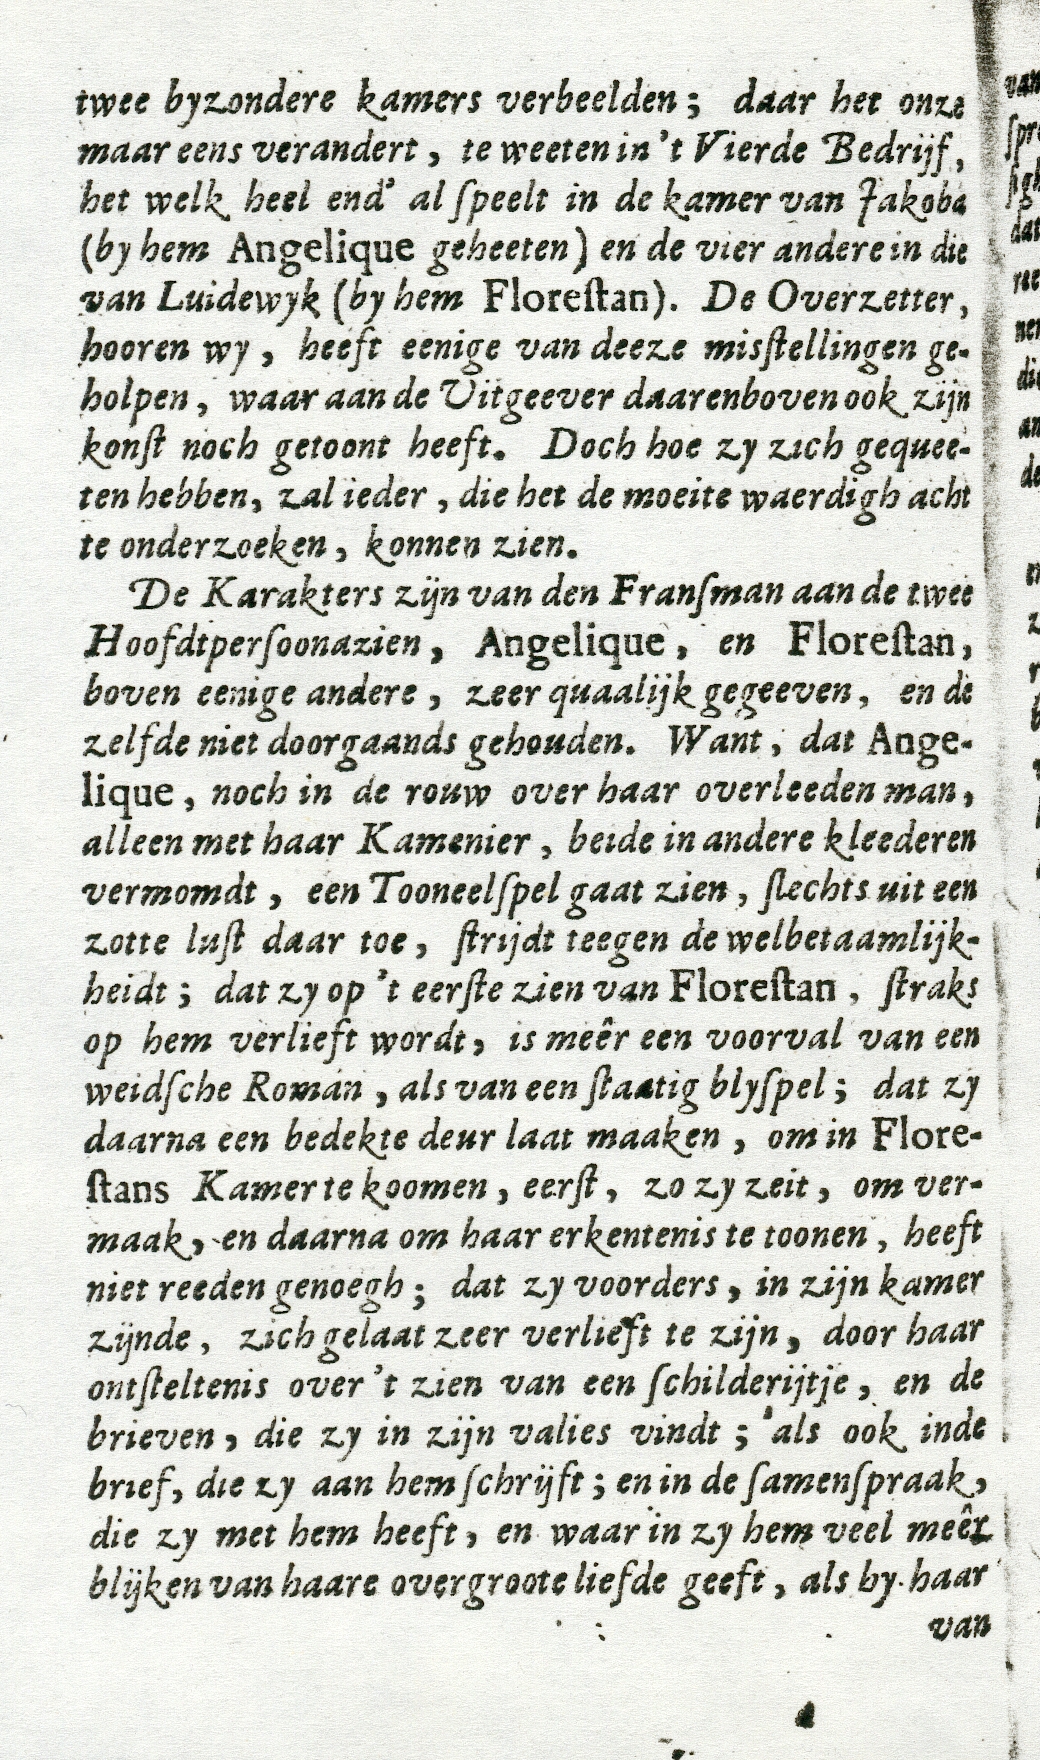 twee byzondere kamers verbeelden; daar het onze
maar eens verandert, te weeten in 't Vierde Bedrijf,
het welk heel end' al ſpeelt in de kamer van Jakoba
(by hem Angelique geheeten) en de vier andere in die
van Luidewyk (by hem Floreſtan). De Overzetter,
hooren wy, heeft eenige van deeze misſtellingen ge-
holpen, waar aan de Uitgeever daarenboven ook zijn
konſt noch getoont heeft. Doch hoe zy zich gequee-
ten hebben, zal ieder, die het de moeite waerdigh acht
te onderzoeken, konnen zien.
De Karakters zijn van den Franſman aan de twee
Hoofdtperſoonazien, Angelique, en Floreſtan,
boven eenige andere, zeer quaalijk gegeeven, en de
zelfde niet doorgaands gehouden. Want, dat Ange-
lique, noch in de rouw over haar overleeden man,
alleen met haar Kamenier, beide in andere kleederen
vermomdt, een Tooneelſpel gaat zien, ſlechts uit een
zotte luſt daar toe, ſtrijdt teegen de welbetaamlijk-
heidt; dat zy op 't eerſte zien van Floreſtan, ſtraks
op hem verlieft wordt, is meêr een voorval van een
weidſche Roman, als van een ſtaatig blyſpel; dat zy
daarna een bedekte deur laat maaken, om in Flore-
ſtans Kamer te koomen, eerſt, zo zy zeit, om ver-
maak, en daarna om haar erkentenis te toonen, heeft
niet reeden genoegh; dat zy voorders, in zijn kamer
zijnde, zich gelaat zeer verlieft te zijn, door haar
ontſteltenis over 't zien van een ſchilderijtje, en de
brieven, die zy in zijn valies vindt; als ook in de
brief, die zy aan hem ſchrijft; en in de ſamenſpraak,
die zy met hem heeft, en waar in zy hem veel meêr
blijken van haare overgroote liefde geeft, als by haar
van